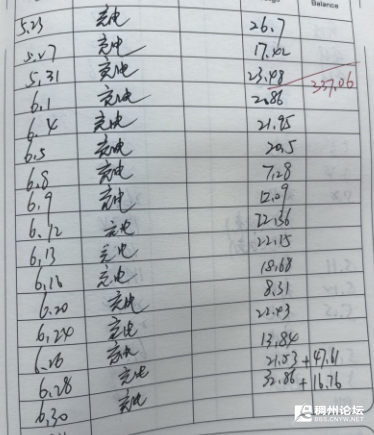 Balance
5.23 充电 26.7
5.27 充电 17.42
5.31 充电 23.48 337.06
6.1 充电 20.86
6.4 充电 21.95
6.5 充电 20.5
6.8 充电 7.28
6.9 充电 12.09
6.12 充电 22.36
6.13 充电 22.15
6.16 充电 18.68
6.20 充电 8.31
6.24 充电 22.43
6.26 充电 13.84
6.28 充电 21.53 + 47.61
6.30 充电 32.86 + 16.76
稠州论坛
BBS.CNYW.NET